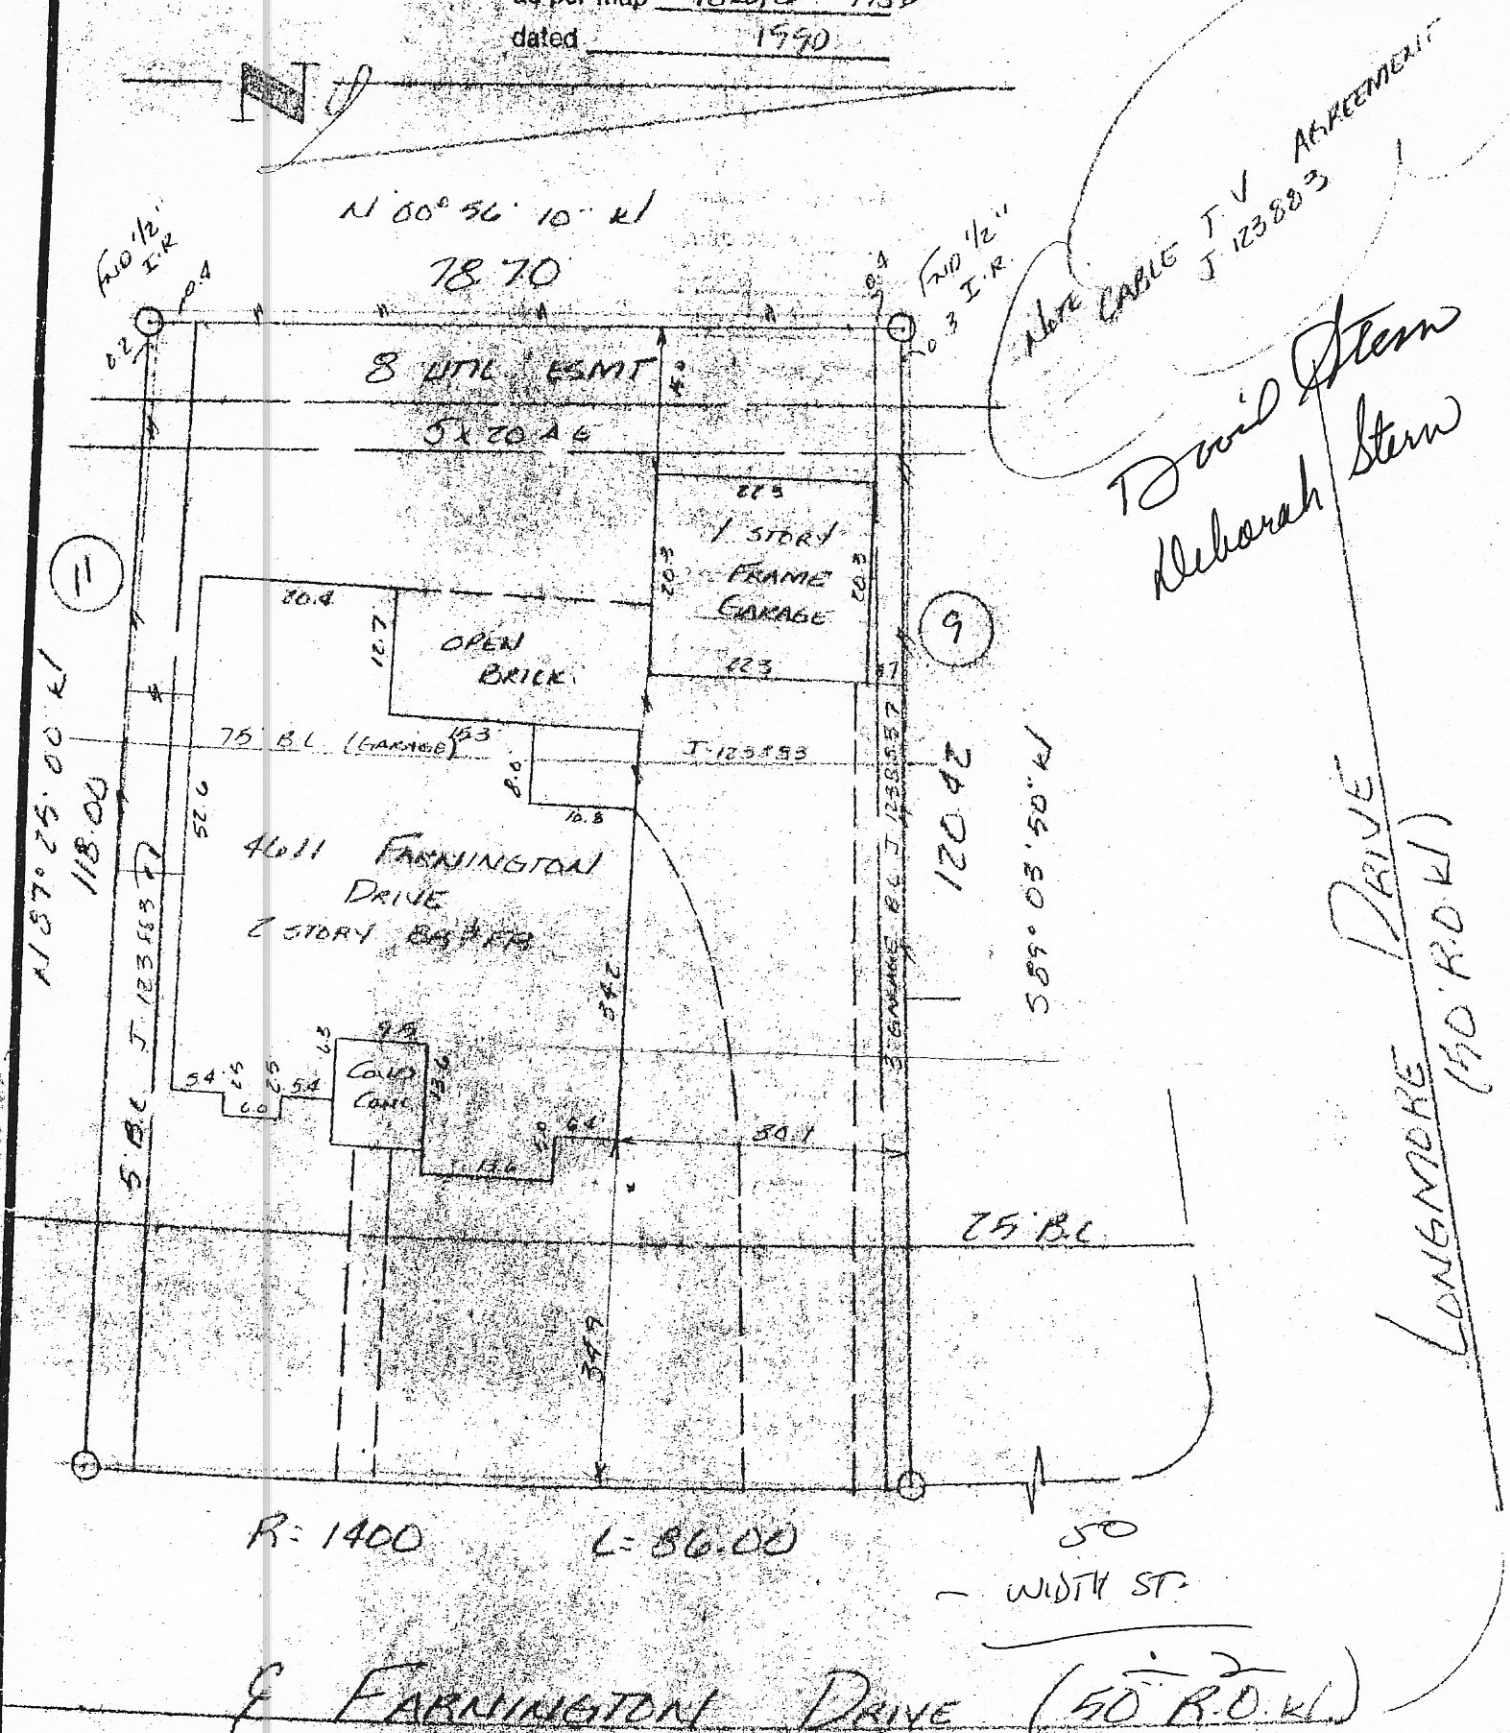 as per map
dated 1990
N
N 00° 56' 10" W
78.70
FND 1/2"
I.R.
0.4
0.2
FND 1/2"
I.R.
0.4
0.3
NOTE CABLE T.V AGREEMENT
J 123883
David Stern
Deborah Stern
8 UTIL ESMT
5 X 20 A E
22.3
1 STORY
FRAME
GARAGE
20.3
20.3
22.3
11
9
20.4
12.7
OPEN
BRICK
75' B.L. (GARAGE)
15.3
J-123883
8.0
10.8
N 87° 25' 00" W
118.00
52.6
4611 FARNINGTON
DRIVE
2 STORY
34.2
5' B.L. J 123883
3' GARAGE B.L. J 123883
120.42
S 89° 03' 50" W
5.4
2.5
6.0
2.5
5.4
6.3
9.5
13.6
COV'D
CONC
13.6
5.0
6.4
30.1
25' B.L.
34.9
R= 1400
L= 86.00
50
WIDTH ST.
LONGMORE DRIVE
(50' R.O.W)
FARNINGTON DRIVE (50' R.O.W.)